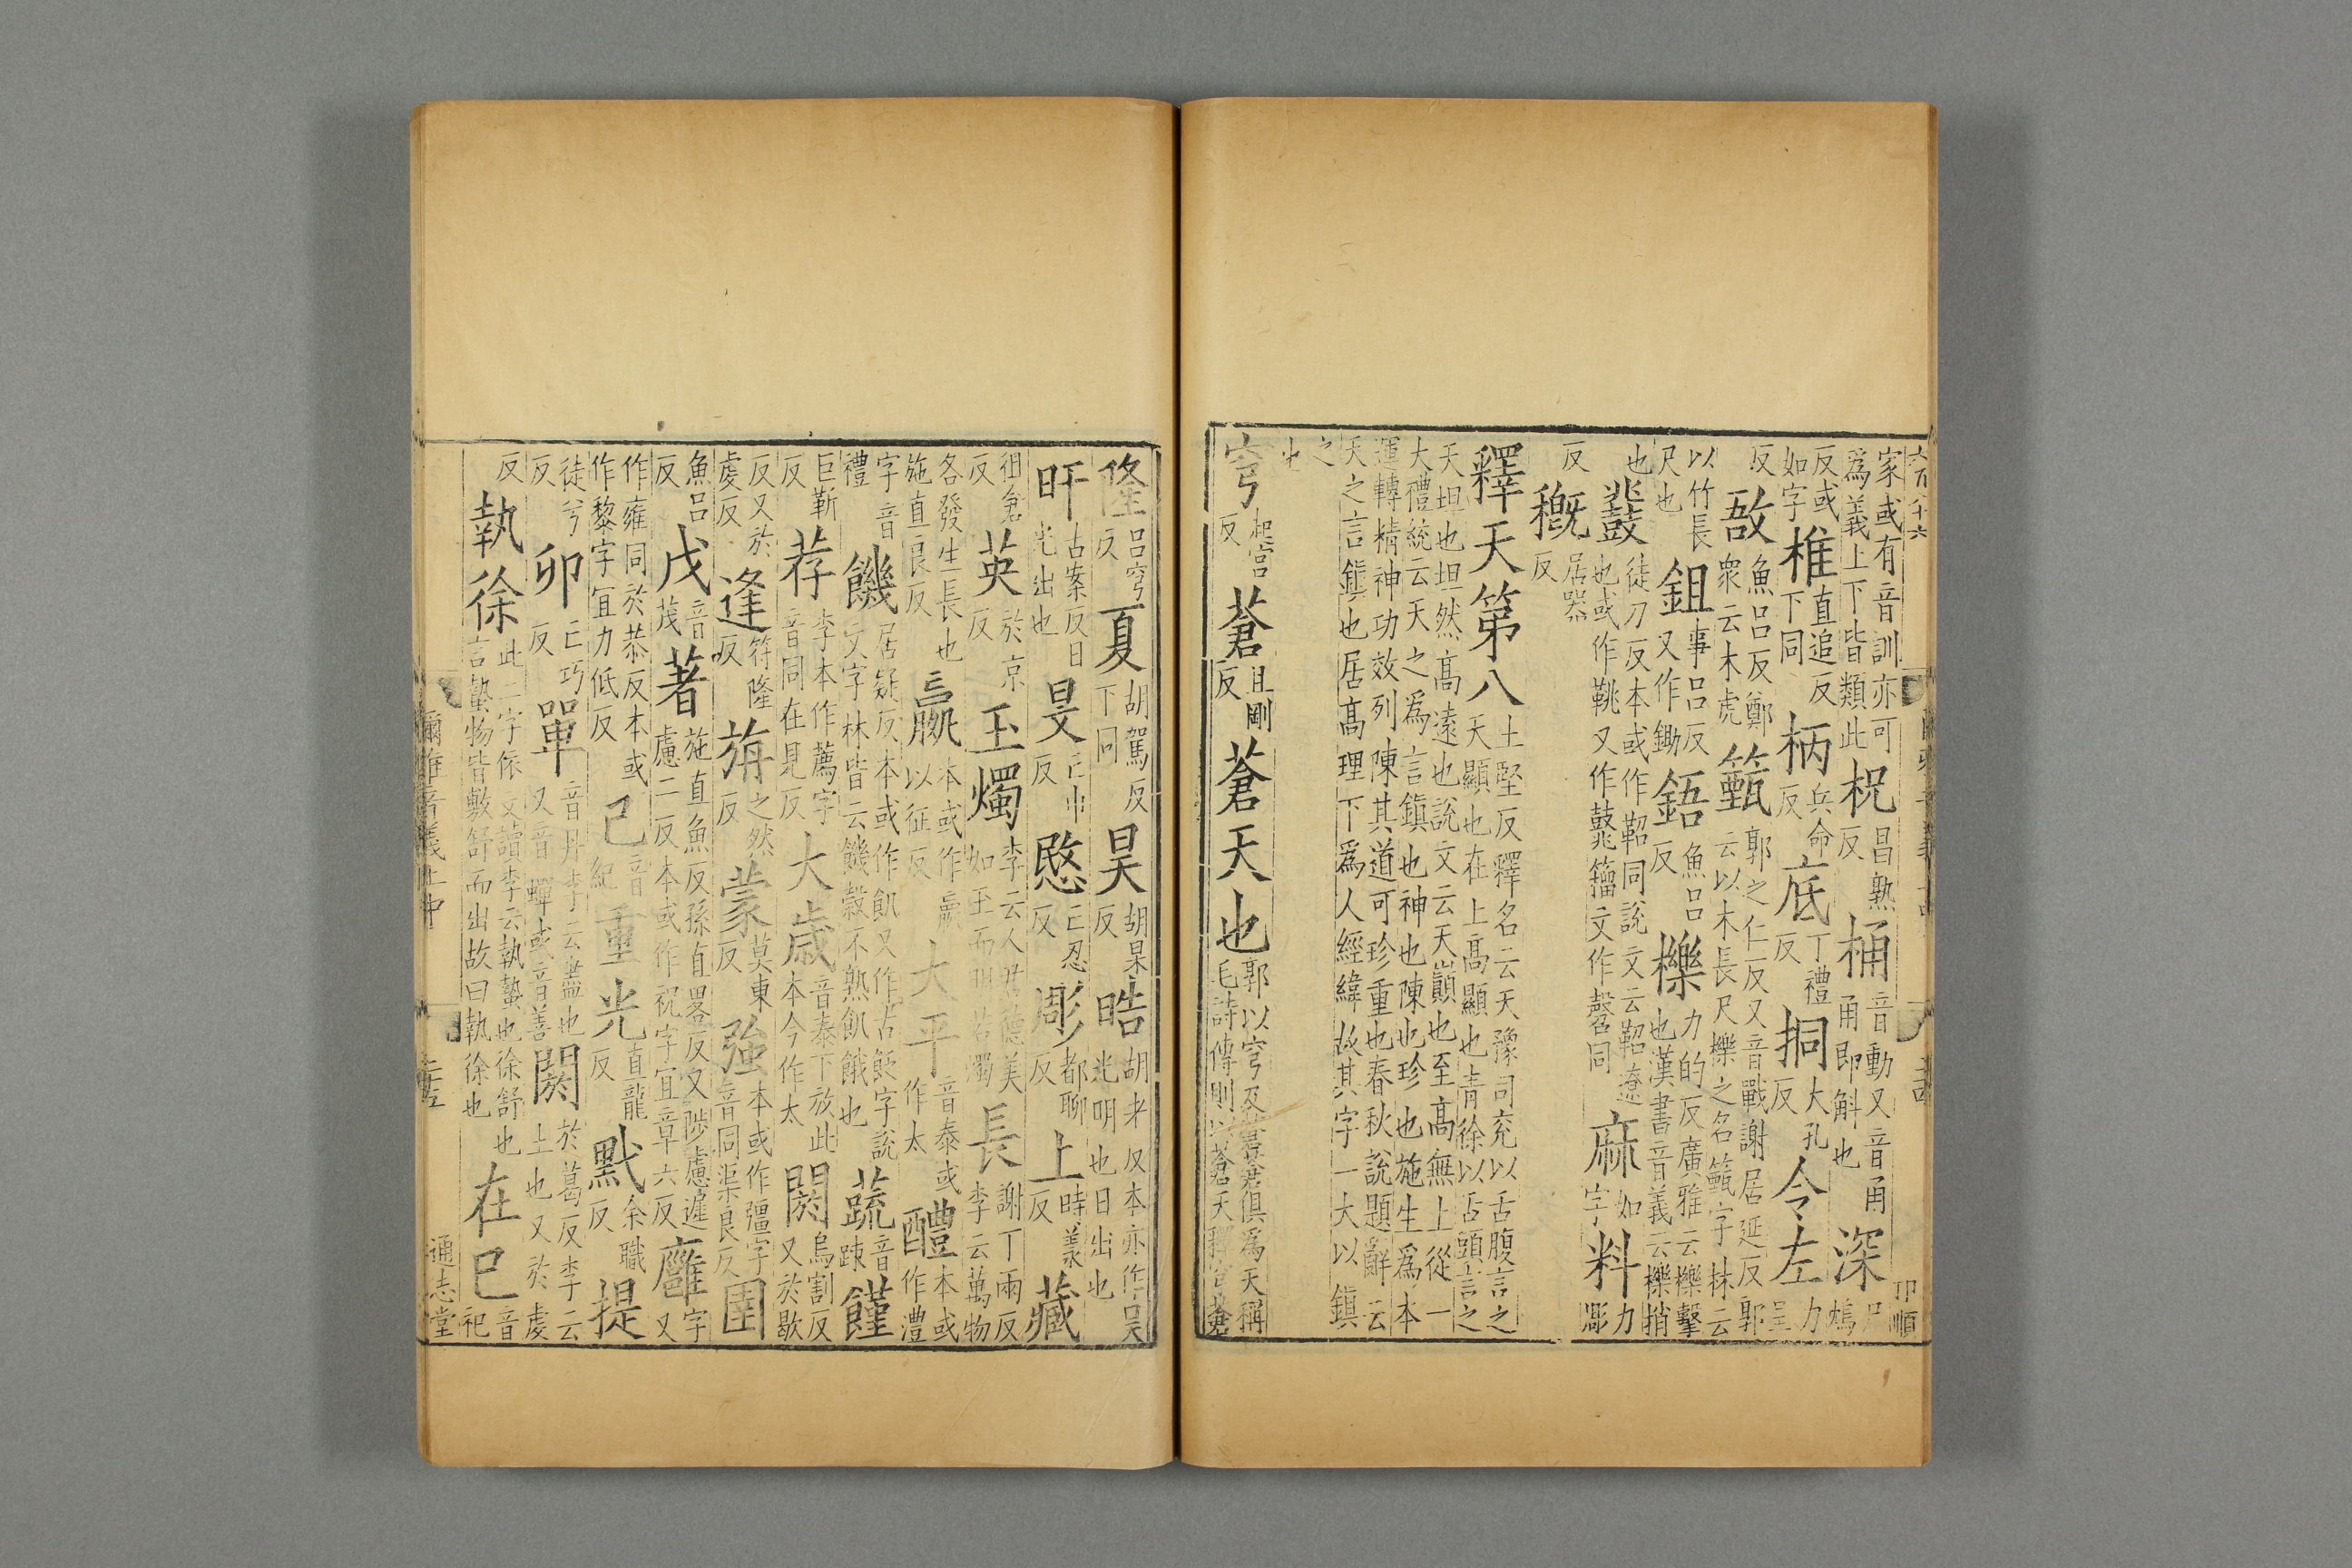 六百八十六
家或有音訓亦可爲義上下皆類此 柷 昌熟反 桶 音動又音甬甬即斛也 深 尺鴆
反或如字 椎 直追反下同 柄 兵命反 底 丁禮反 挏 大孔反 令左 力呈
反 敔 魚呂反鄭衆云木虎 籈 郭之仁反又音戰謝居延反郭云以木長尺櫟之名籈字林云
以竹長尺也 鉏 事呂反又作鋤 鋙 魚呂反 櫟 力的反廣雅云櫟擊也漢書音義云櫟捎
也 鼗 徒刀反本或作鞀同說文云鞀遼也或作鞉又作鼗籀文作磬同 麻 如字 料 力彫
反 概 居器反
釋天第八 土堅反釋名云天豫司兖以舌腹言之天顯也在上高顯也青徐以舌頭言之
天坦也坦然高遠也說文云天巓也至高無上從一大禮統云天之爲言鎮也神也陳也珍也施生爲本
運轉精神功效列陳其道可珍重也春秋說題辭云天之言鎮也居高理下爲人經緯故其字一大以鎮
之也
穹 起宮反 蒼 且剛反 蒼天也 郭以穹及蒼蒼俱爲天稱毛詩傳則以蒼天釋穹蒼
隆 呂穹反 夏 胡駕反下同 昊 胡杲反 皓 胡老反本亦作昊光明也日出也
旰 古案反日光出也 旻 亡巾反 愍 亡忍反 彫 都聊反 上 時羕反 藏
徂倉反 英 於京反 玉燭 李云人君德美如玉而明若燭 長 謝丁兩反李云萬物
各發生長也施直良反 嬴 本或作贏以征反 大平 音泰或作太 醴 本或作澧
字音禮 饑 居疑反本或作飢又作古飯字說文字林皆云饑穀不熟飢餓也 蔬 音踈 饉
巨靳反 荐 李本作薦字音同在見反 大歲 音泰下放此本今作太 閼 烏割反又於歇
反又於虔反 逢 符隆反 旃 之然反 蒙 莫東反 強 本或作彊字音同渠良反 圉
魚呂反 戊 音茂 著 施直魚反孫直略反又陟慮遲慮二反本或作祝字宜章六反 廱 字又
作雍同於恭反本或作黎字宜力低反 己 音紀 重光 直龍反 黓 余職反 提
徒兮反 卯 亡巧反 單 音丹李云盡也又音蟬或音善 閼 於葛反李云土也又於虔
反 執徐 此二字依文讀李云執蟄也徐舒也言蟄物皆敷舒而出故曰執徐也 在巳 音祀
爾雅音義上中
通志堂